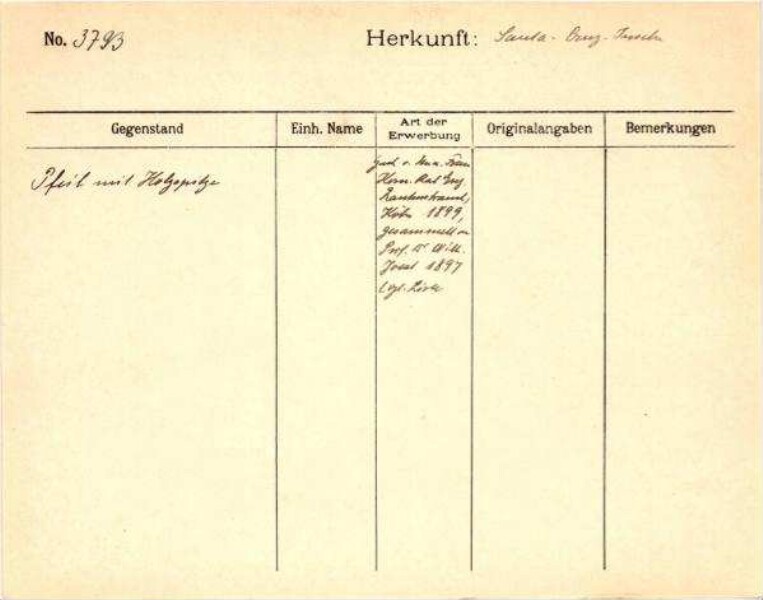 No. 3793
Herkunft: Santa-Cruz-Inseln
Gegenstand
Einh. Name
Art der
Erwerbung
Originalangaben
Bemerkungen
Pfeil mit Holzspitze
Gesch. v. Frau
Rat Eug.
Rautenstrauch,
Köln 1899,
gesammelt v.
Prof. Dr. Wilh.
Joest 1897